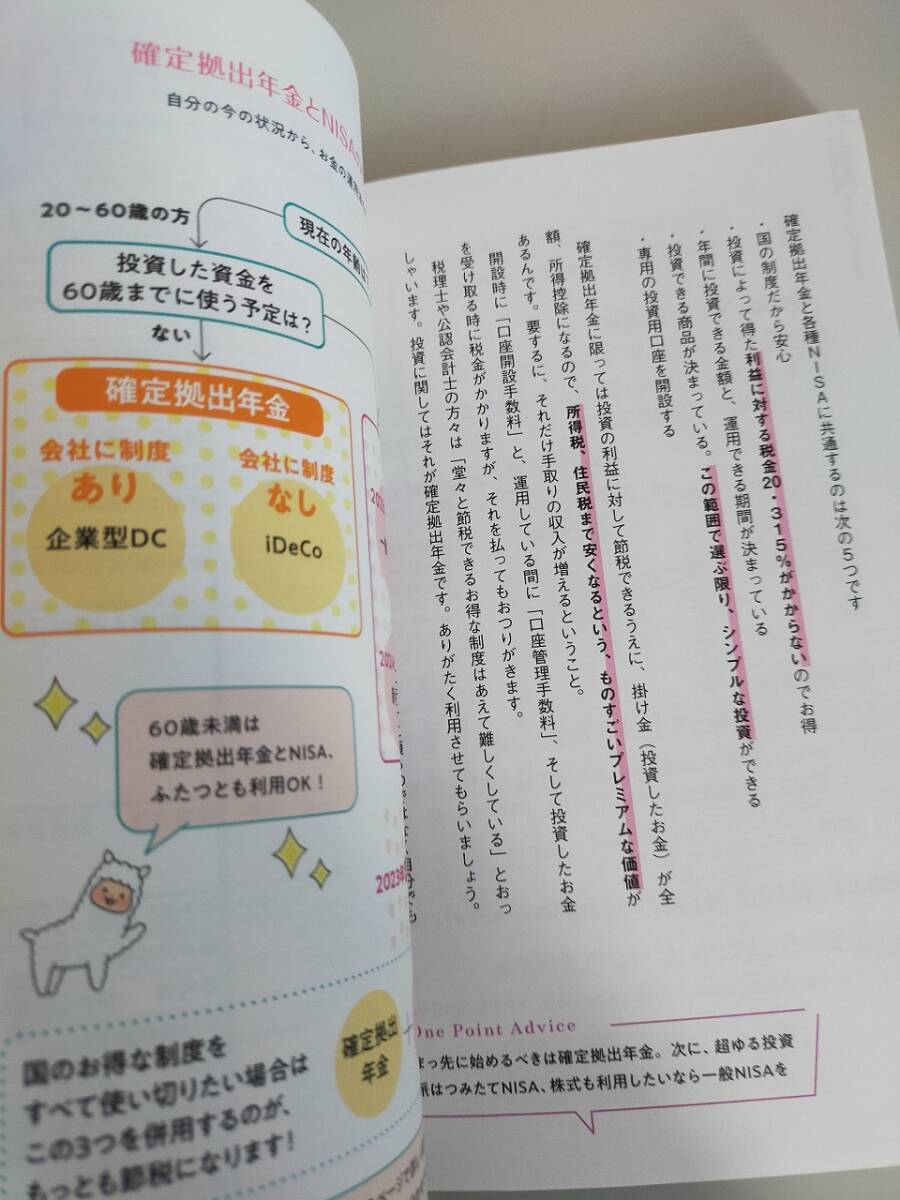 確定拠出年金とNISAの
自分の今の状況から、お金の運用
20〜60歳の方
現在の年齢は
投資した資金を
60歳までに使う予定は?
ない
確定拠出年金
会社に制度
あり
企業型DC
会社に制度
なし
iDeCo
60歳未満は
確定拠出年金とNISA、
ふたつとも利用OK!
2023年
国のお得な制度を
すべて使い切りたい場合は
この3つを併用するのが、
もっとも節税になります!
確定拠出
年金
確定拠出年金と各種NISAに共通するのは次の5つです
・国の制度だから安心
・投資によって得た利益に対する税金20・315%がかからないのでお得
・年間に投資できる金額と、運用できる期間が決まっている
・投資できる商品が決まっている。この範囲で選ぶ限り、シンプルな投資ができる
・専用の投資用口座を開設する
確定拠出年金に限っては投資の利益に対して節税できるうえに、掛け金(投資したお金)が全
額、所得控除になるので、所得税、住民税まで安くなるという、ものすごいプレミアムな価値が
あるんです。要するに、それだけ手取りの収入が増えるということ。
開設時に「口座開設手数料」と、運用している間に「口座管理手数料」、そして投資したお金
を受け取る時に税金がかかりますが、それを払ってもおつりがきます。
税理士や公認会計士の方々は「堂々と節税できるお得な制度はあえて難しくしている」とおっ
しゃいます。投資に関してはそれが確定拠出年金です。ありがたく利用させてもらいましょう。
One Point Advice
まっ先に始めるべきは確定拠出年金。次に、超ゆる投資
派はつみたてNISA、株式も利用したいなら一般NISAを